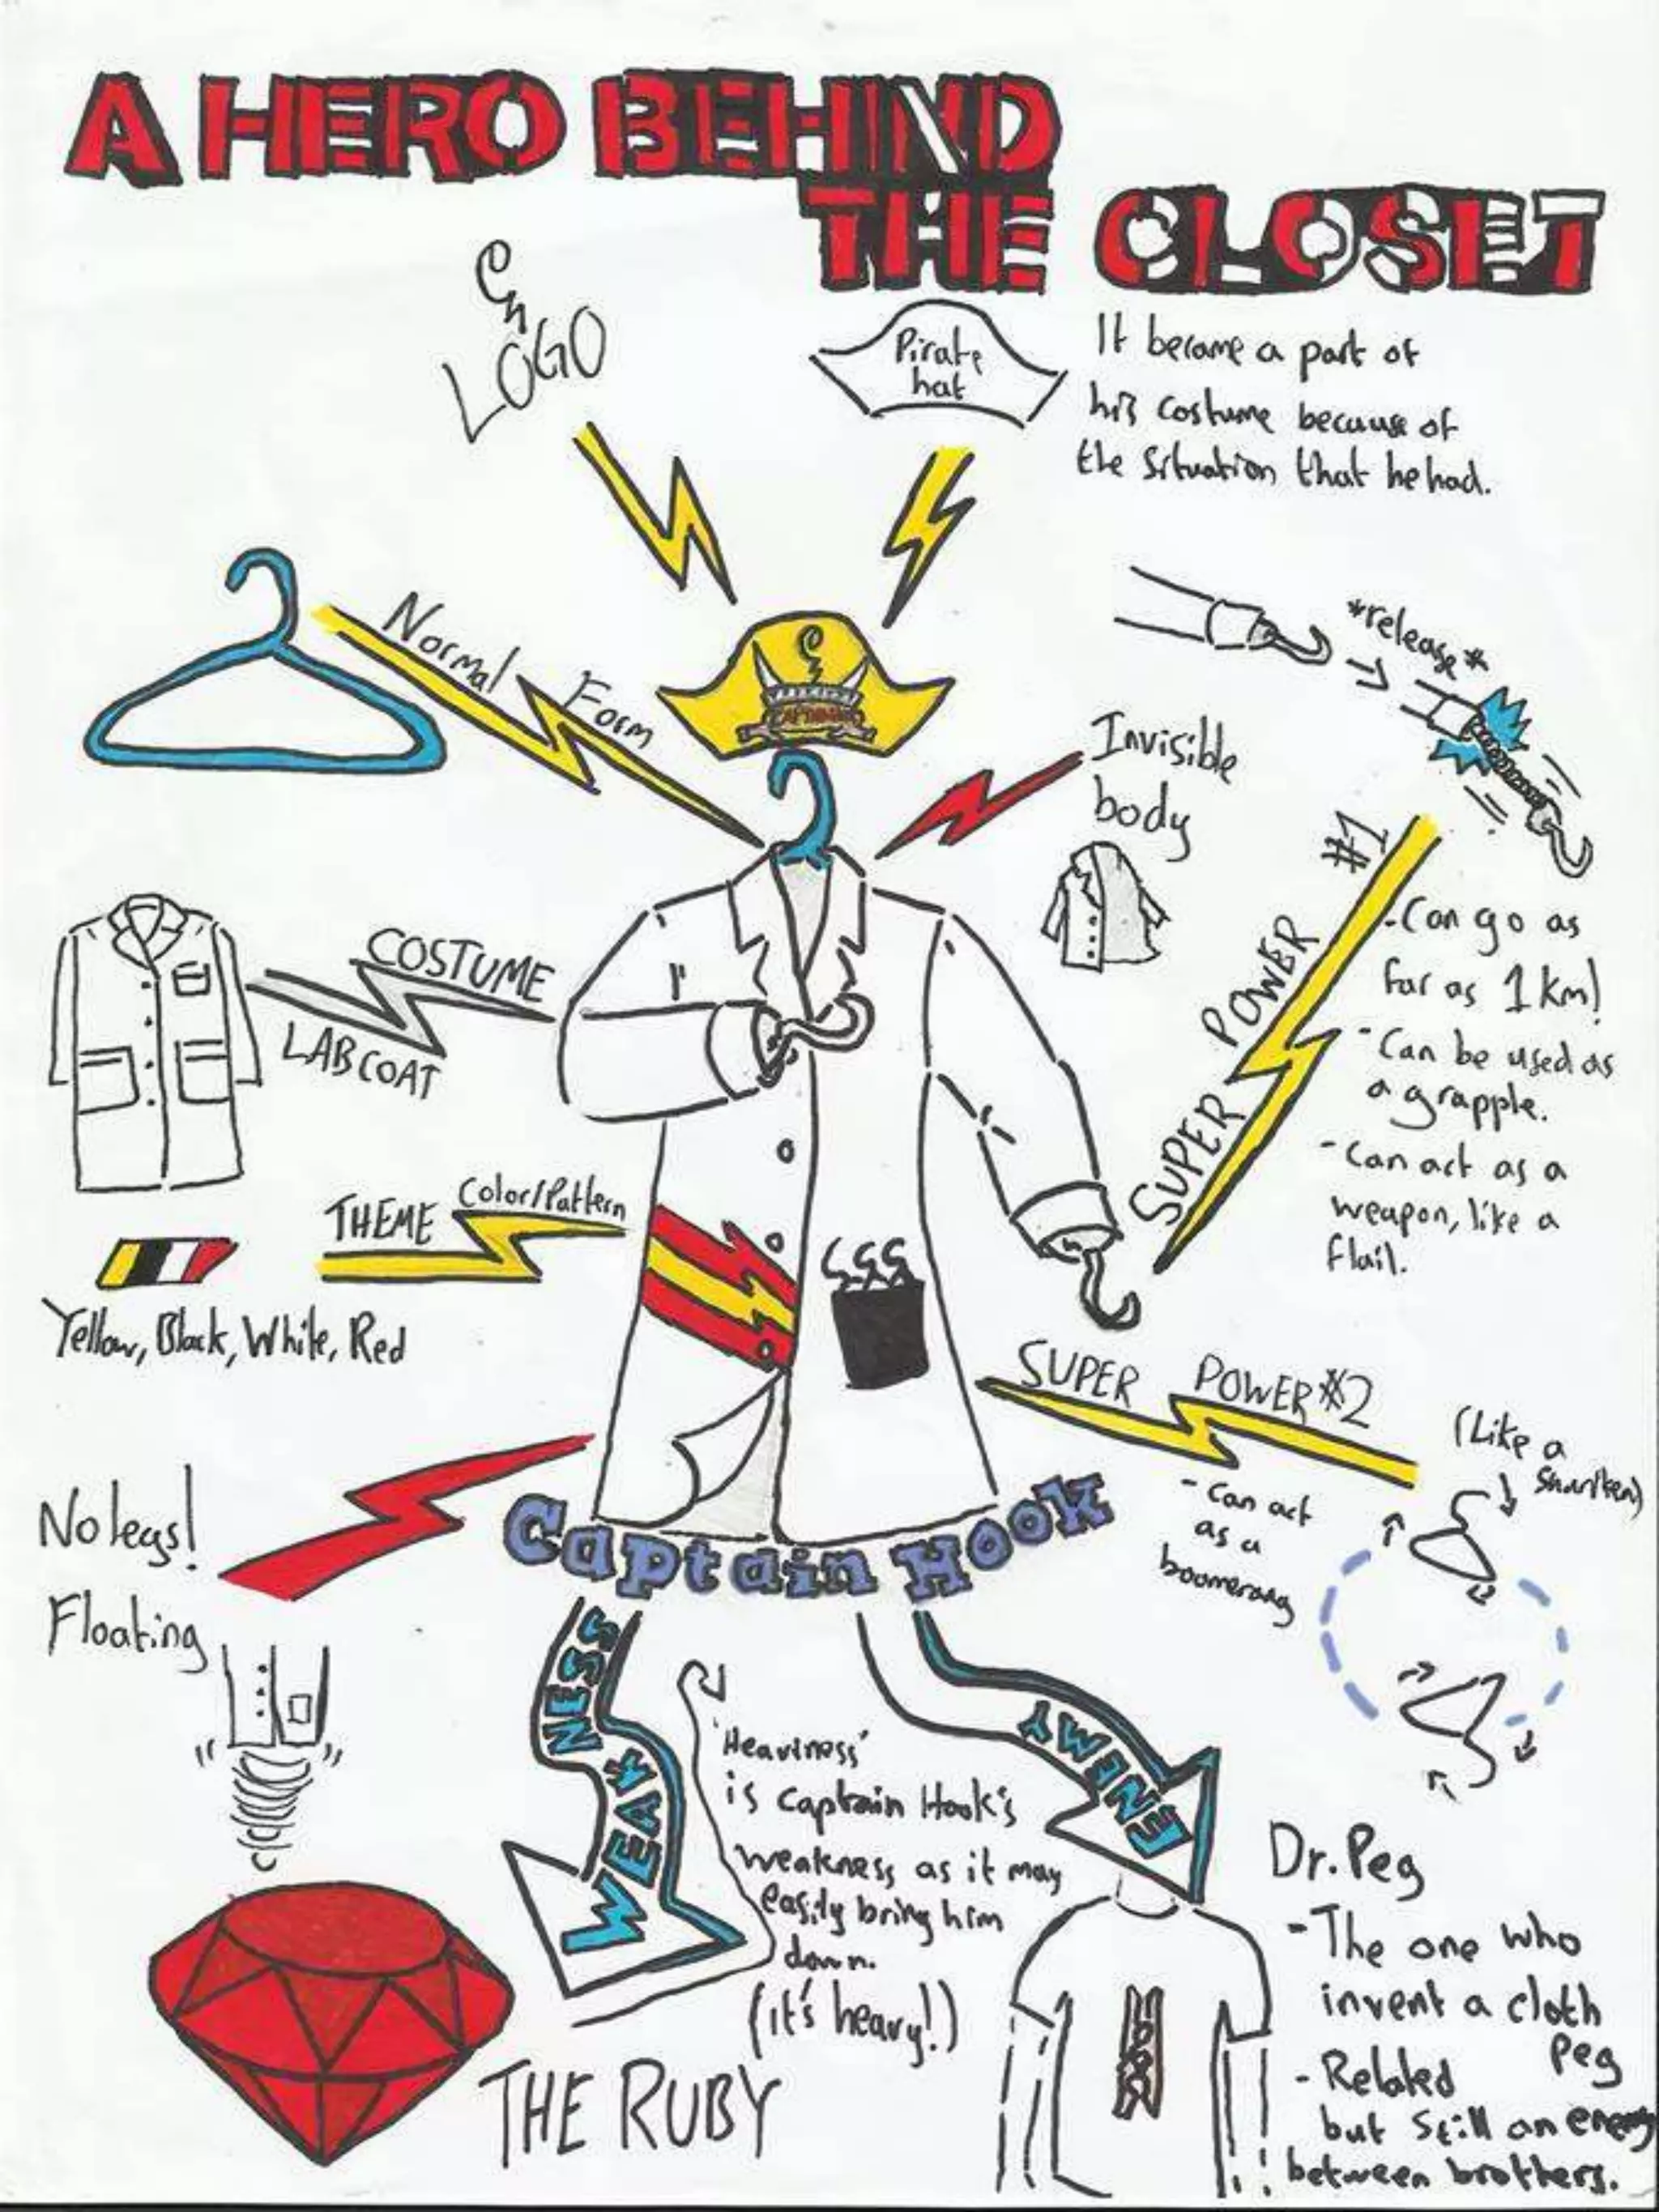 A HERO BEHIND
THE CLOSET
LOGO
Pirate
hat
It became a part of
his costume because of
the situation that he had.
Normal Form
*release*
Invisible
body
COSTUME
LAB COAT
SUPER POWER #1
-Can go as
far as 1 km!
-Can be used as
a grapple.
-Can act as a
weapon, like a
flail.
THEME Color/Pattern
Yellow, Black, White, Red
SUPER POWER #2
(Like a
shuriken)
-Can act
as a
boomerang
No legs!
Floating
Captain Hook
WEAKNESS
'Heaviness'
is Captain Hook's
weakness as it may
easily bring him
down.
(it's heavy!)
THE RUBY
ENEMY
Dr. Peg
-The one who
invent a cloth
Peg
-Related
but still an enemy
between brothers.